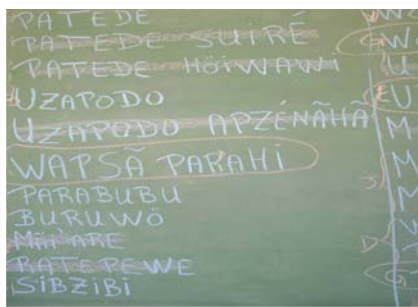 PATEDE
PATEDE SUIRÉ
PATEDE HÖIWAWI
UZAPODO
UZAPODO APZÉNÃHÃ
WAPSÃ PARAHI
PARABUBU
BURUWÖ
MÃI'ARE
RATEPEWE
SIBZIBI